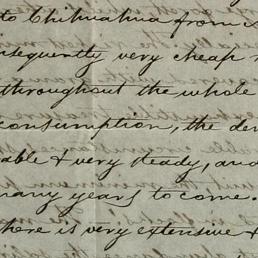 to Chihuahua from
nsequently very cheap
throughout the whole
consumption, the de
able & very steady, and
many years to come.
here is very extensive &